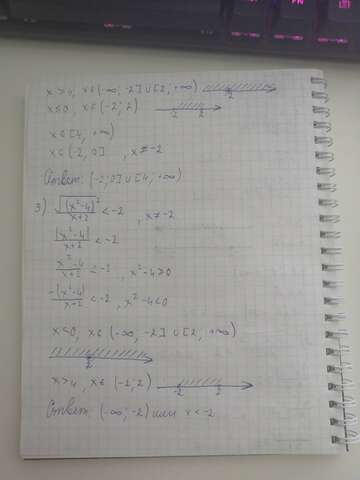 x > 4, x ∈ (-∞; -2] ∪ [2; +∞) 2
x ≤ 0, x ∈ (-2; 2) -2 2
x ∈ [4, +∞)
x ∈ (-2, 0] , x ≠ -2
Ответ: (-2; 0] ∪ [4, +∞)
3) √(x²-4)² / x+2 < -2 , x ≠ -2
|x²-4| / x+2 < -2
x²-4 / x+2 < -2 , x²-4 ≥ 0
-(x²-4) / x+2 < -2 , x²-4 < 0
x < 0, x ∈ (-∞, -2] ∪ [2, +∞)
2
x > 4, x ∈ (-2; 2) -2 2
Ответ: (-∞; -2) или x < -2